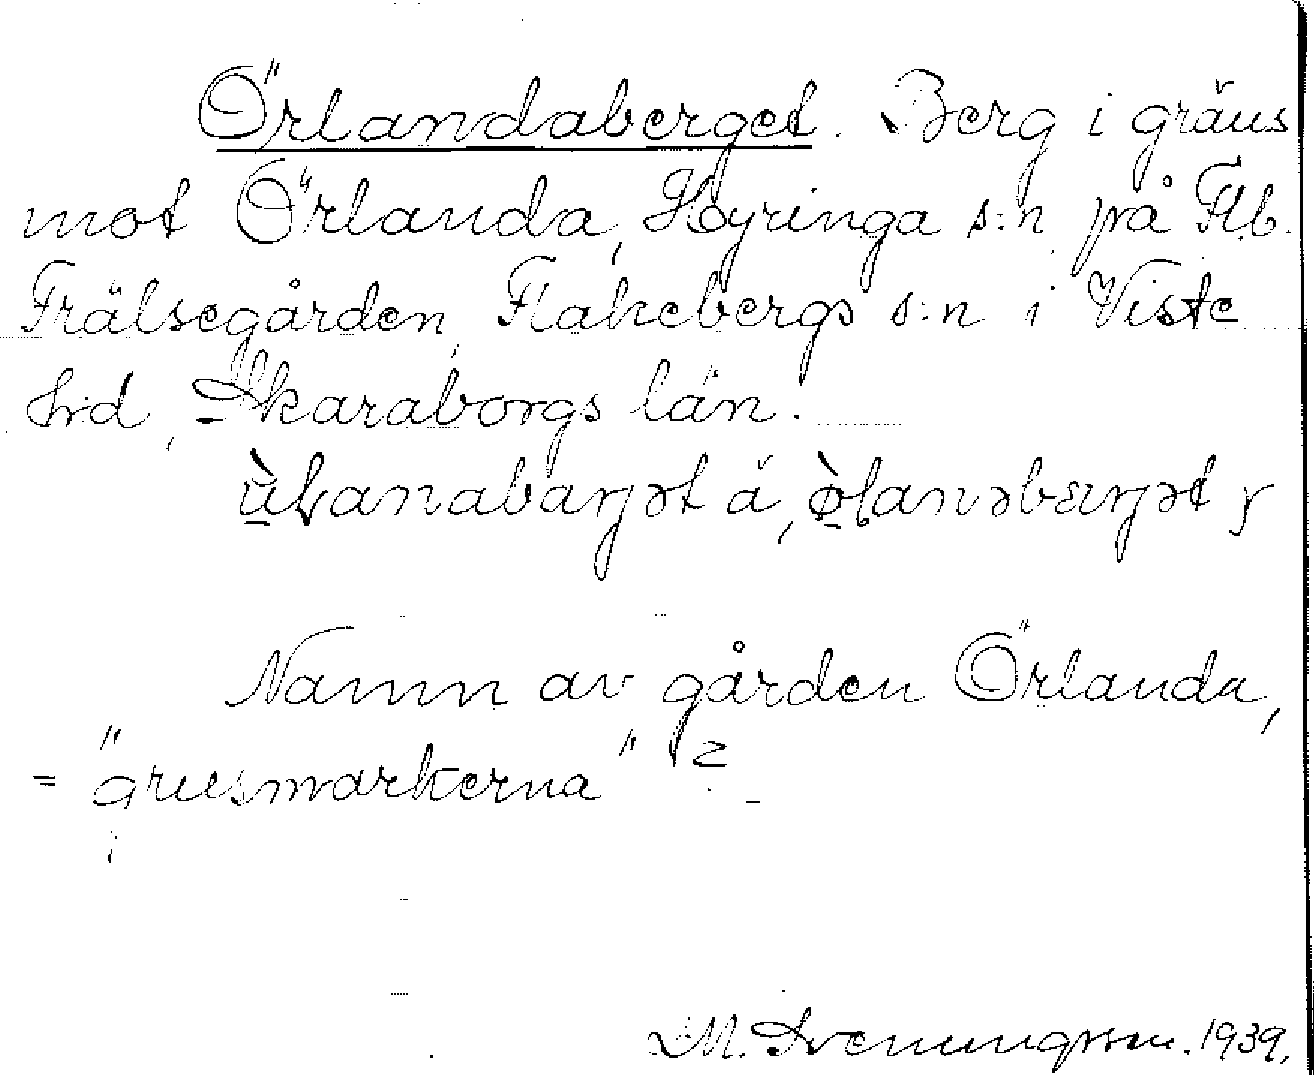 Örlandaberget. Berg i gräns
mot Örlanda, Hyringa s:n på Flb.
Frälsegården, Flakebergs s:n i Viste
hd, Skaraborgs län.
å,
Namn av gården Örlanda,
= "grusmarkerna" ?
M. Svenungsson. 1939.